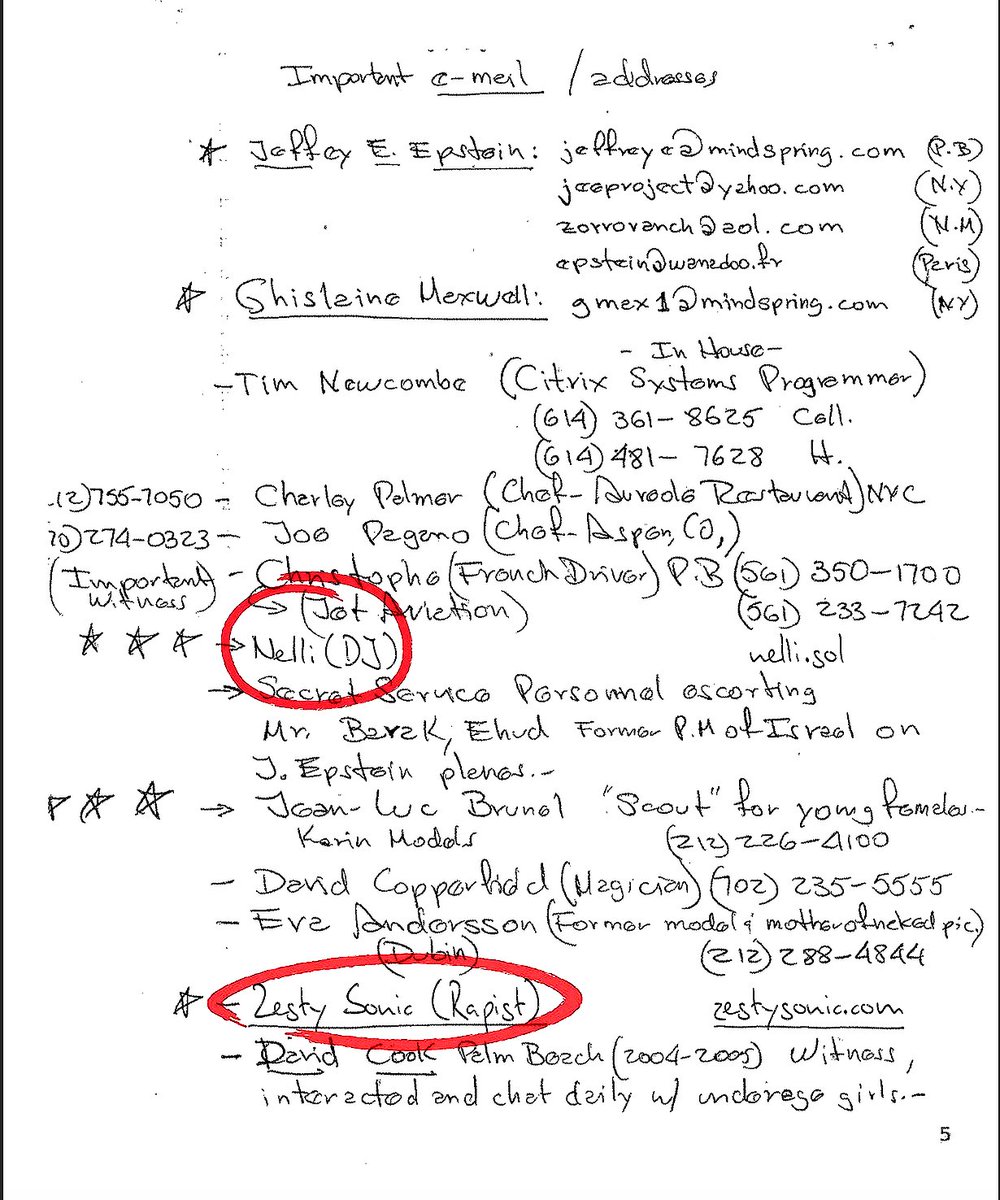 Important e-mail / addresses
Jeffey E. Epstein: jeffreye@mindspring.com (P.B)
jeeproject@yahoo.com (N.Y)
zorroranch@aol.com (N.M)
epstein@wanadoo.fr (Paris)
Ghislaine Maxwell: gmax1@mindspring.com (NY)
- In House -
- Tim Newcombe (Citrix Systems Programmer)
(614) 361-8625 Cell.
(614) 481-7628 H.
12)755-7050 - Charley Palmer (Chef-Aureole Restaurant) NYC
70)274-0323 - Joe Pagano (Chef-Aspen, CO,)
(Important Witness) - Christophe (French Driver) P.B (561) 350-1700
→ (Jet Aviation) (561) 233-7242
→ Nelli (DJ) nelli.sol
→ Secret Service Personnel escorting
Mr. Barak, Ehud Former P.M of Israel on
J. Epstein planes.-
→ Jean-Luc Brunel "Scout" for young females.-
Karin Models (212) 226-4100
- David Copperfield (Magician) (702) 235-5555
- Eva Andersson (Former model & mother of naked pic.)
(Dubin) (212) 288-4844
- Zesty Sonic (Rapist) zestysonic.com
- David Cook Palm Beach (2004-2005) Witness,
interacted and chat daily w/ underage girls.-
5